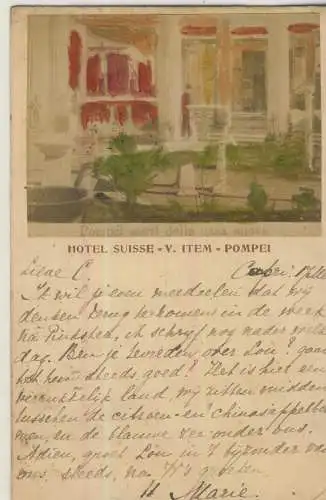 Pompei
HOTEL SUISSE - V. ITEM - POMPEI
Lieve C.
Ik wil je even meedeelen dat wij
denken terug te komen in de week
na Pinkster, ik schrijf nog nader welke
dag. Ben je tevreden over Lou? gaat
het hem steeds goed? Het is hier een
verrukkelijk land, wij zitten midden
tusschen de citroen- en chinaasappelboo-
men, en de blauwe zee onder ons.
Adieu, groet Lou in 't bijzonder van
ons. steeds,
Marie.